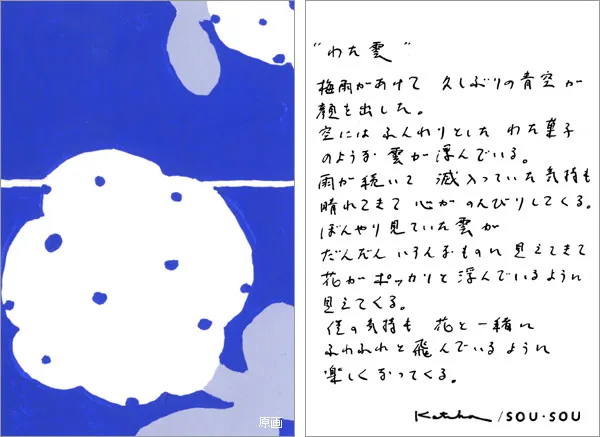 "わた雲"
梅雨があけて 久しぶりの青空が
顔を出した。
空には ふんわりとした わた菓子
のような 雲が 浮んでいる。
雨が 続いて 滅入っていた 気持も
晴れてきて 心が のんびりしてくる。
ぼんやり 見ていた 雲が
だんだん いろんなものに 見えてきて
花が ポッカリと 浮んでいるように
見えてくる。
僕の気持も 花と一緒に
ふわふわと 飛んでいるように
楽しくなってくる。
Katsuhan/SOU・SOU
原画